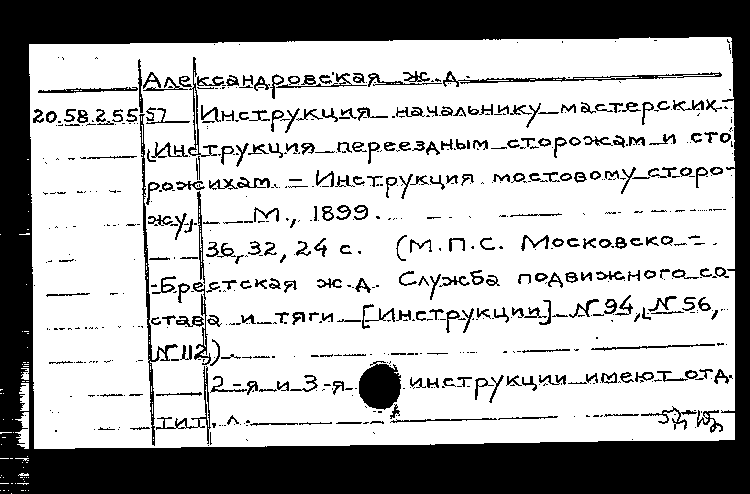 Александровская ж.д.
20.58.255 57 Инструкция начальнику мастерских.-
Инструкция переездным сторожам и сто
рожихам. - Инструкция мостовому сторо-
жу, М., 1899.
36, 32, 24 с. (М.П.С. Московско-
-Брестская ж.д. Служба подвижного со-
става и тяги [Инструкции] № 94, № 56,
№ 112).
2-я и 3-я инструкции имеют отд.
тит. л.